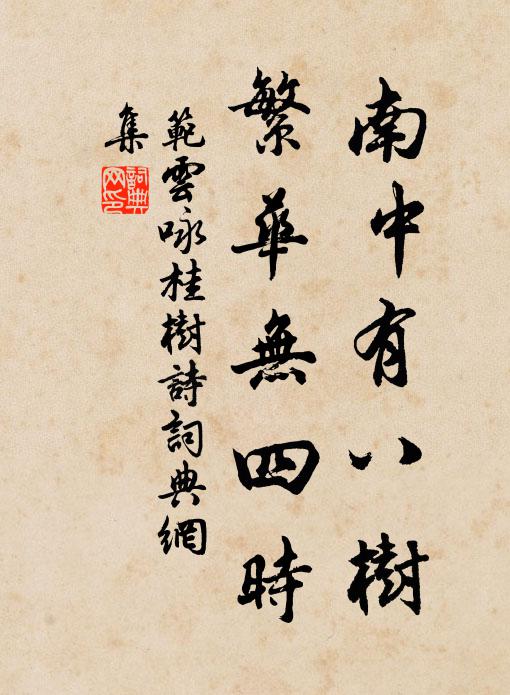 南中有八樹
繁華無四時
範雲咏桂樹詩詞典網
集
詞典網印